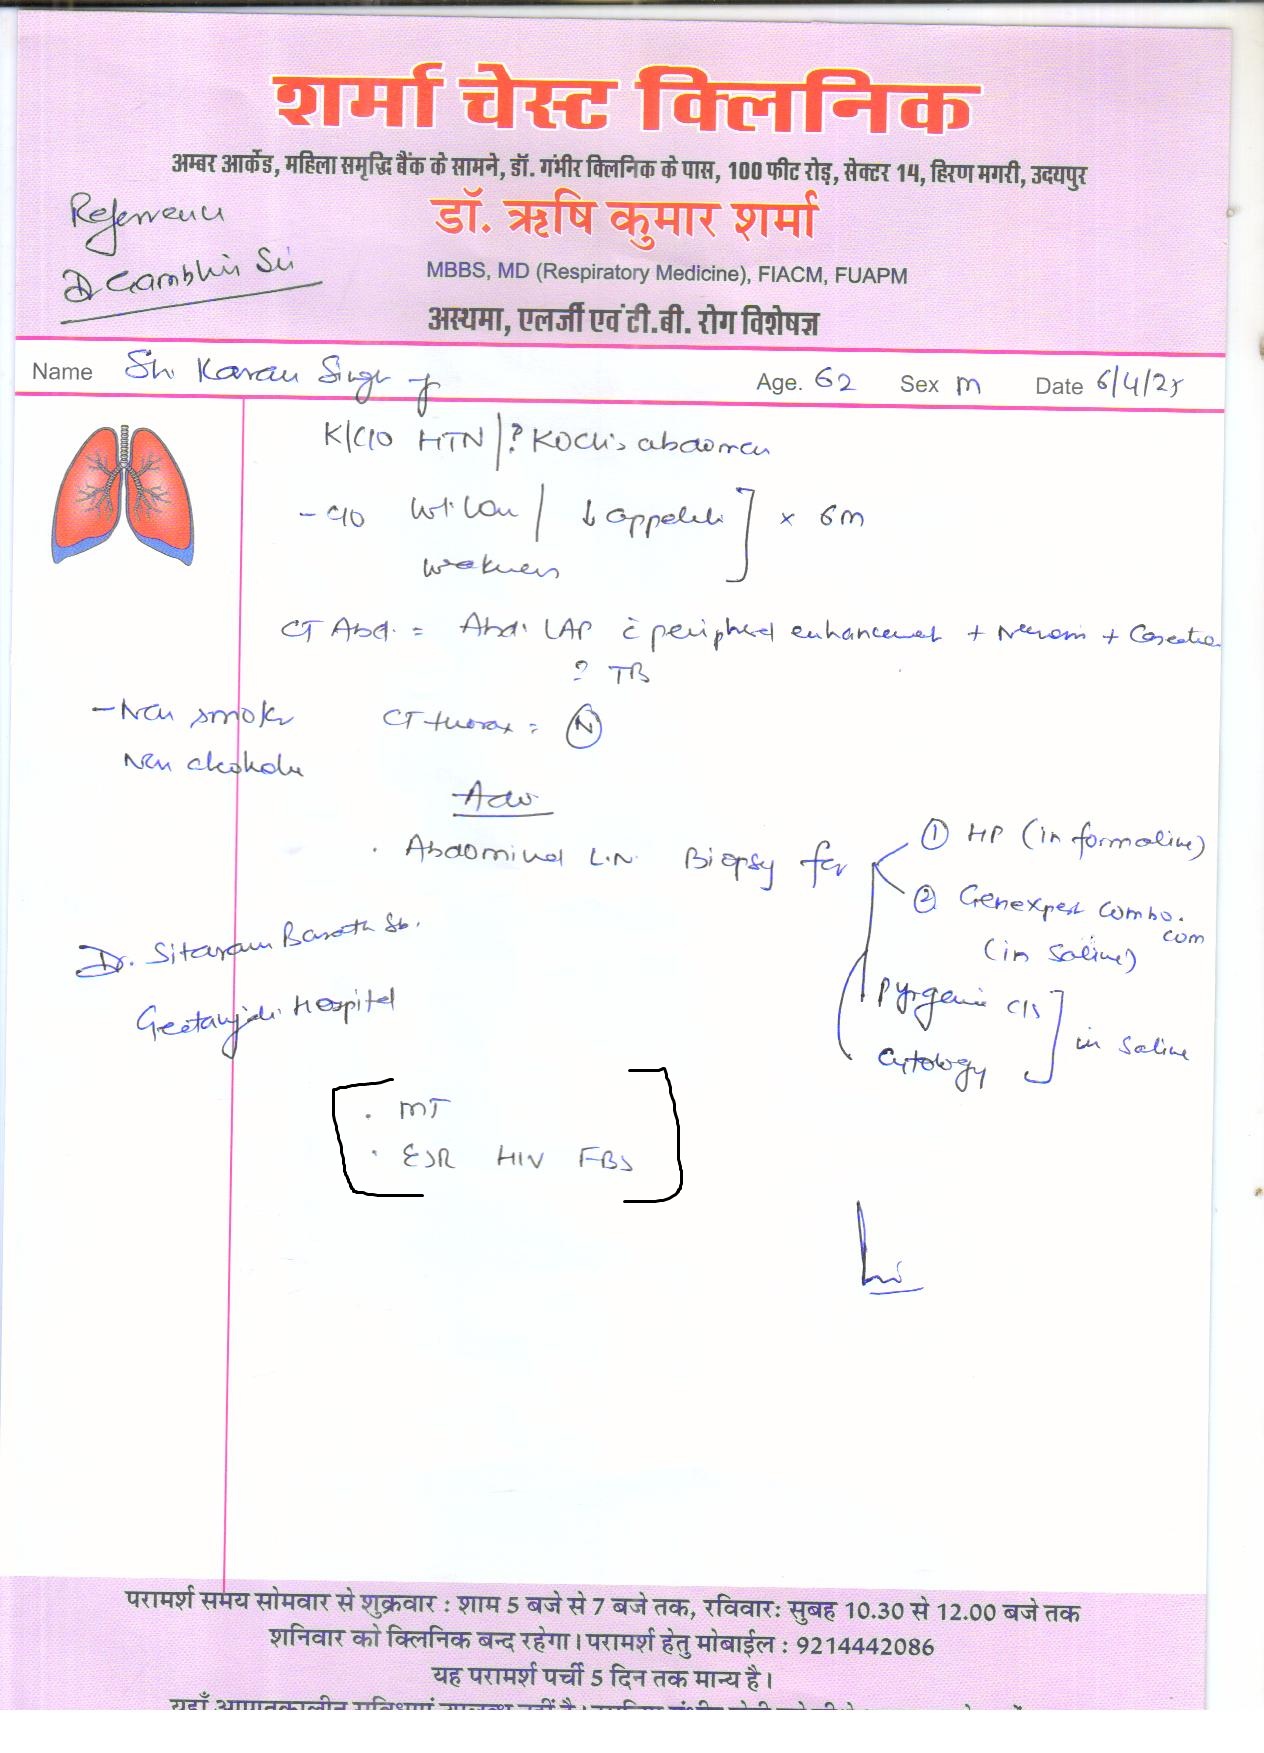 शर्मा चेस्ट क्लिनिक
अम्बर आर्केड, महिला समृद्धि बैंक के सामने, डॉ. गंभीर क्लिनिक के पास, 100 फीट रोड़, सेक्टर 14, हिरण मगरी, उदयपुर
Referrence
Dr Gambhir Sir
डॉ. ऋषि कुमार शर्मा
MBBS, MD (Respiratory Medicine), FIACM, FUAPM
अस्थमा, एलर्जी एवं टी.बी. रोग विशेषज्ञ
Name Sh. Karan Singh Age. 62 Sex M Date 6/4/25
K/C/O HTN / ? Koch's abdomen
- C/O Wt. loss / ↓ appetite ] x 6m
weakness
CT Abd. = Abd. LAP c̄ peripheral enhancement + Necrosis +
? TB
- Non smoker CT thorax = N
Non alcoholic
Adv
. Abdominal L.N. Biopsy for
① HP (in formaline)
② Genexpert combo.
(in saline)
Pyogenic C/S ] in saline
Cytology
Dr. Sitaram Barath Sb.
Geetanjali Hospital
. MT
. ESR HIV FBS
परामर्श समय सोमवार से शुक्रवार : शाम 5 बजे से 7 बजे तक, रविवारः सुबह 10.30 से 12.00 बजे तक
शनिवार को क्लिनिक बन्द रहेगा। परामर्श हेतु मोबाईल : 9214442086
यह परामर्श पर्ची 5 दिन तक मान्य है।
यहाँ आपातकालीन सुविधाएं उपलब्ध नहीं है।